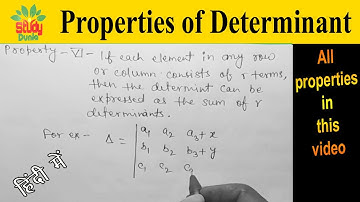 Study Dunia
Properties of Determinant
Property-VI- If each element in any row
or column consists of r terms,
then the determint can be
expressed as the sum of r
determinants.
For ex- Δ = | a₁ a₂ a₃+x
b₁ b₂ b₃+y
c₁ c₂ c₃
All
properties
in
this
video
हिंदी में